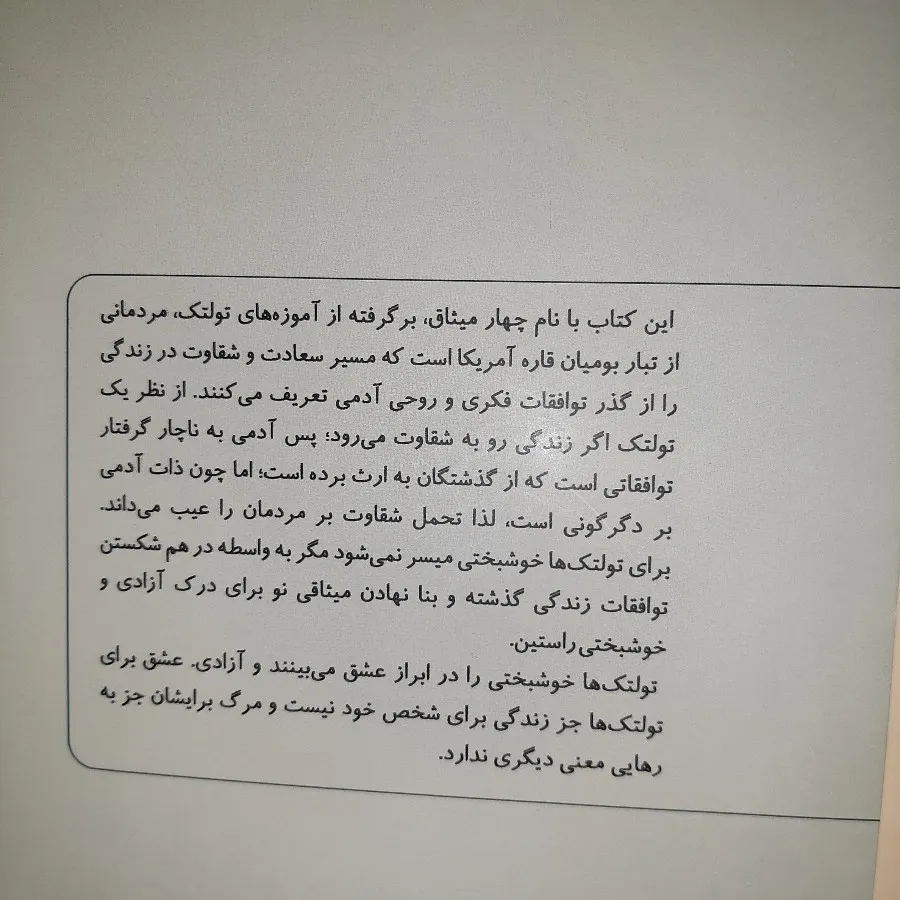 این کتاب با نام چهار میثاق، برگرفته از آموزه‌های تولتک، مردمانی
از تبار بومیان قاره آمریکا است که مسیر سعادت و شقاوت در زندگی
را از گذر توافقات فکری و روحی آدمی تعریف می‌کنند. از نظر یک
تولتک اگر زندگی رو به شقاوت می‌رود؛ پس آدمی به ناچار گرفتار
توافقاتی است که از گذشتگان به ارث برده است؛ اما چون ذات آدمی
بر دگرگونی است، لذا تحمل شقاوت بر مردمان را عیب می‌داند.
برای تولتک‌ها خوشبختی میسر نمی‌شود مگر به واسطه در هم شکستن
توافقات زندگی گذشته و بنا نهادن میثاقی نو برای درک آزادی و
خوشبختی راستین.
تولتک‌ها خوشبختی را در ابراز عشق می‌بینند و آزادی. عشق برای
تولتک‌ها جز زندگی برای شخص خود نیست و مرگ برایشان جز به
رهایی معنی دیگری ندارد.